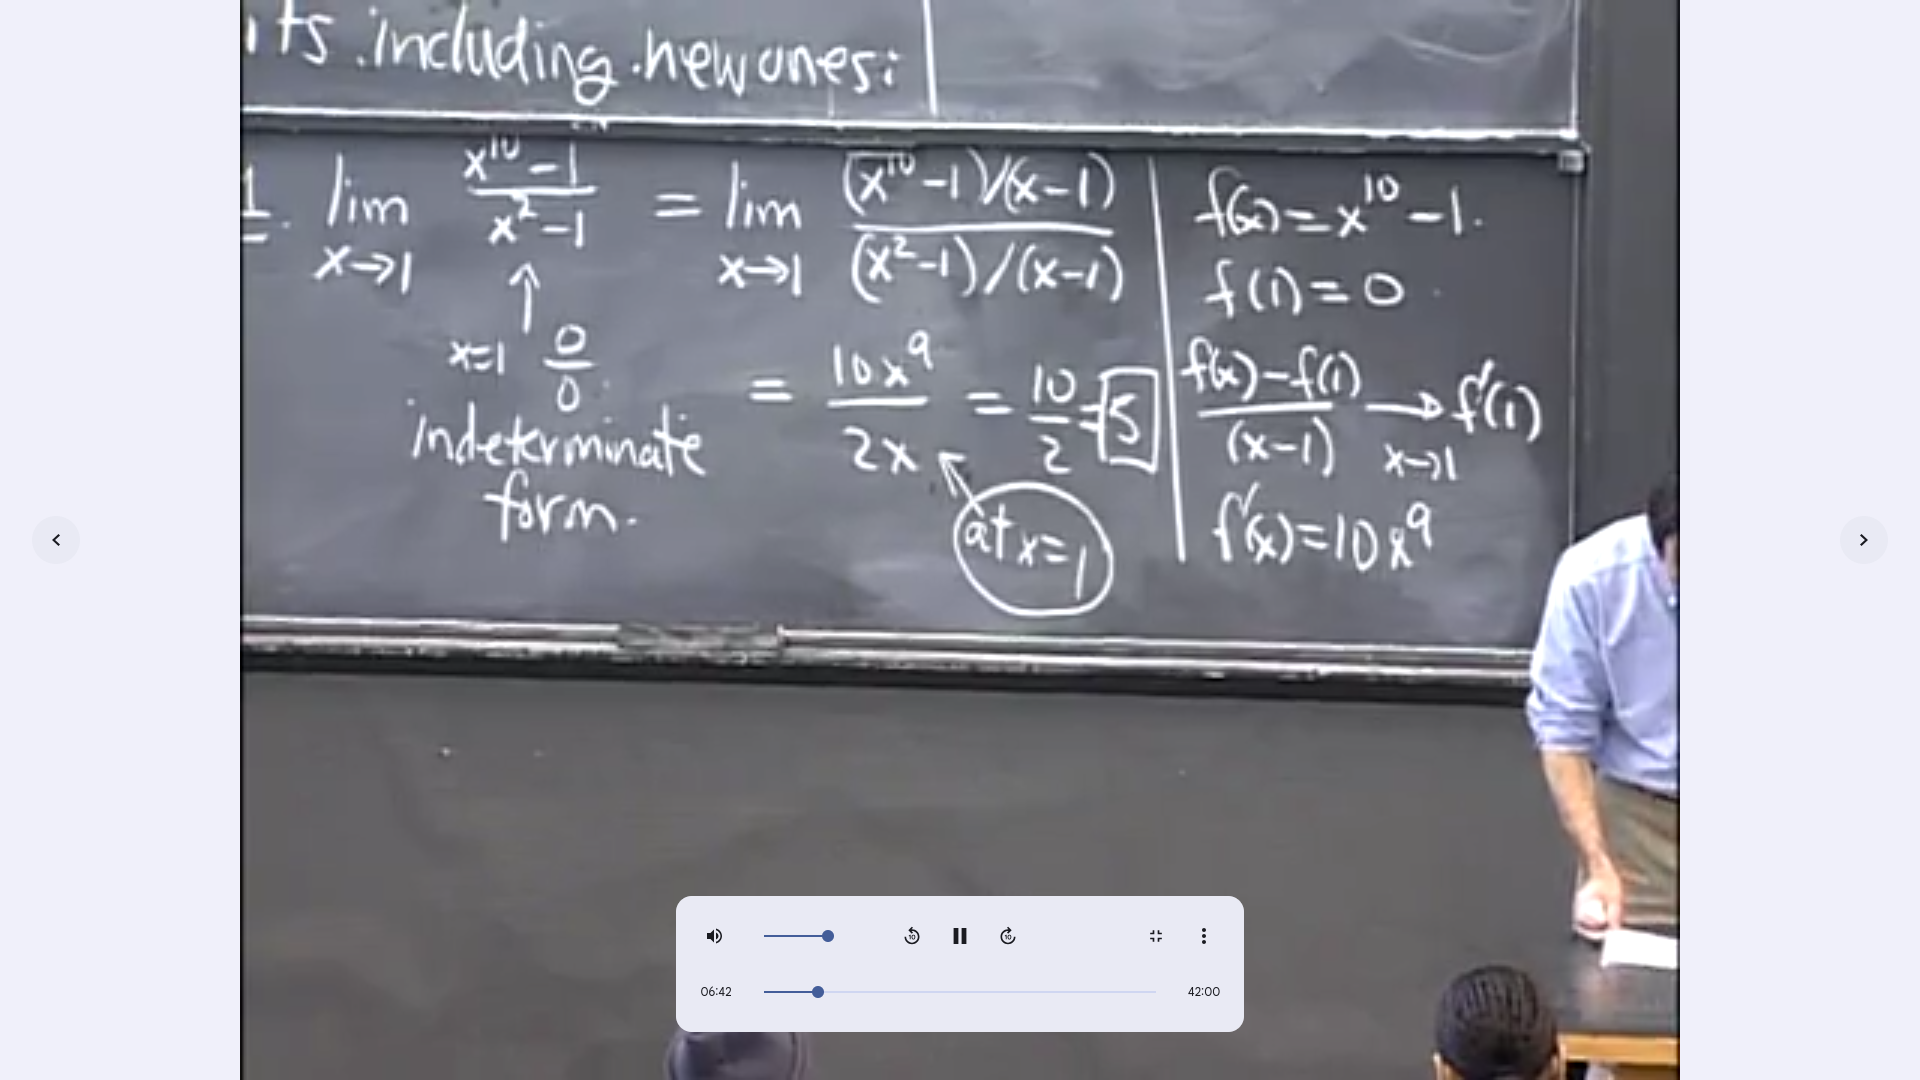 its including new ones:
1. lim x→1 (x^10 - 1)/(x^2 - 1) = lim x→1 ((x^10 - 1)/(x-1))/((x^2-1)/(x-1))
↑
x=1 0/0
indeterminate
form.
= 10x^9/2x = 10/2 = 5
at x=1
f(x) = x^10 - 1.
f(1) = 0
(f(x) - f(1))/(x-1) → f'(1)
x→1
f'(x) = 10x^9
10
10
06:42
42:00